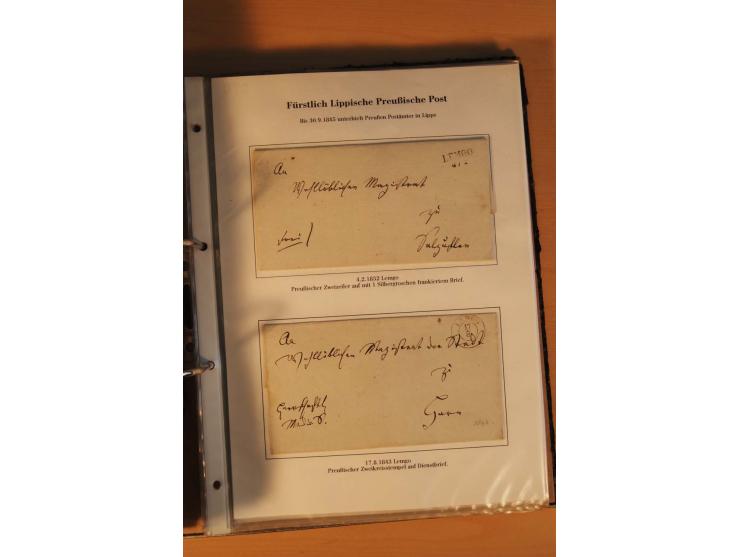 Fürstlich Lippische Preußische Post
Bis 30.9.1845 unterhielt Preußen Postämter in Lippe
LEMGO
An
Wohllöblichen Magistrat
zu
Salzuflen
frei
4.2.1832 Lemgo
Preußischer Zweizeiler auf mit 1 Silbergroschen frankiertem Brief.
An
Wohllöblichen Magistrat der Stadt
zu
Horn
17.8.1843 Lemgo
Preußischer Zweikreisstempel auf Dienstbrief.